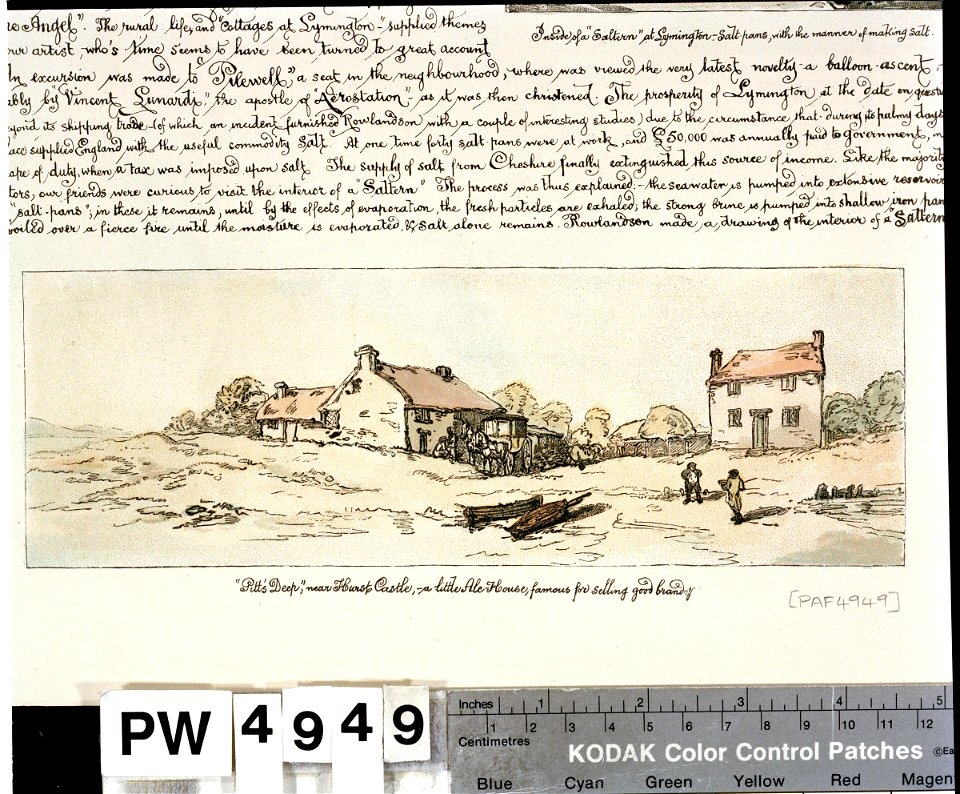 Angel". The rural life, and "Cottages at Lymington,"- supplied themes
our artist, who's time seems to have been turned to great account
Inside of a "Saltern" at Lymington - Salt pans, with the manner of making salt.
In excursion was made to "Pilewell," a seat in the neighbourhood, where was viewed the very latest novelty - a balloon ascent
by "Vincent Lunardi," the apostle of "Aërostation" - as it was then christened. The prosperity of Lymington, at the date in
its shipping trade - (of which an incident furnished Rowlandson with a couple of interesting studies) due to the circumstance that during its palmy days
supplied England, with the useful commodity Salt. At one time forty salt pans were at work, and £50.000 was annually paid to government, in
of duty, when a tax was imposed upon salt The supply of salt from Cheshire finally extinguished this source of income. Like the majority
our friends were curious to visit the interior of a "Saltern" The process was thus explained:- the seawater is pumped into extensive reservoir
"salt-pans"; in these it remains, until by the effects of evaporation, the fresh particles are exhaled; the strong brine is pumped into shallow iron pan
boiled over a fierce fire until the moisture is evaporated, & salt alone remains. Rowlandson made, a drawing of the interior of a "Saltern
"Pitt's Deep", near Hurst Castle, - a little Ale House, famous for selling good brandy
[PAF4949]
PW 4949
Inches 1 2 3 4 5
1 2 3 4 5 6 7 8 9 10 11 12
Centimetres
KODAK Color Control Patches
Blue Cyan Green Yellow Red Magen